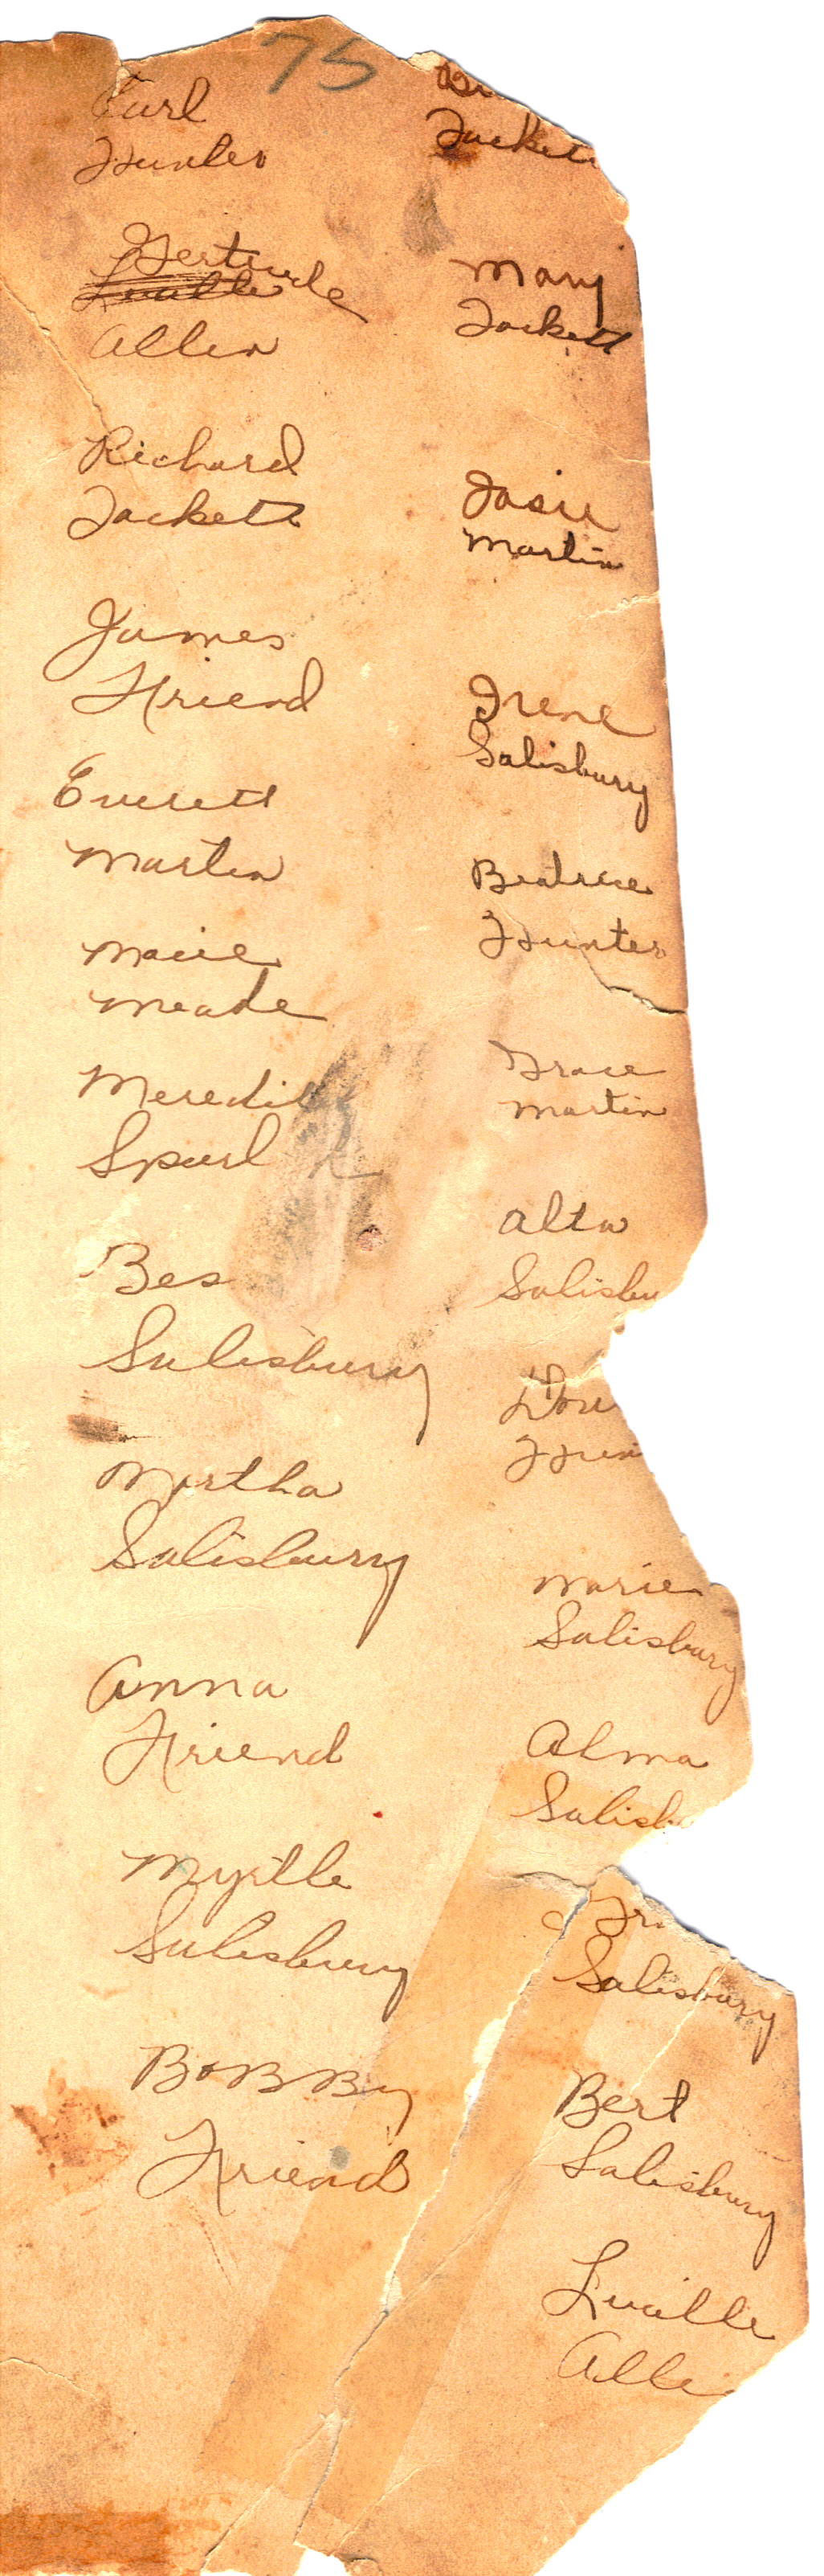 75
Earl
Hunter
Gertrude
Lucille
Allen
Richard
Tackett
James
Friend
Everett
Martin
Macie
Meade
Meredith
Spurl
Bes
Salisbury
Martha
Salisbury
Anna
Friend
Myrtle
Salisbury
BoBBy
Friend
Tackett
Mary
Tackett
Josie
Martin
Irene
Salisbury
Beatrice
Hunter
Grace
Martin
Alta
Salisbu
Hun
Marie
Salisbury
Alma
Salisb
Salisbury
Bert
Salisbury
Lucille
Alle